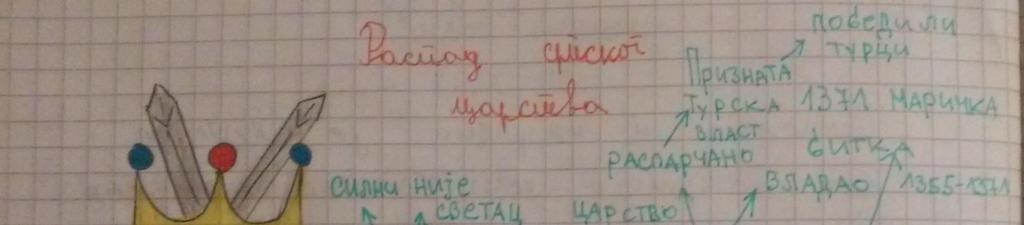 Распад српског
царства
победили
турци
Призната
Турска
власт
1371 Маричка
битка
распарчано
царство
владао 1355-1371
силни није
светац